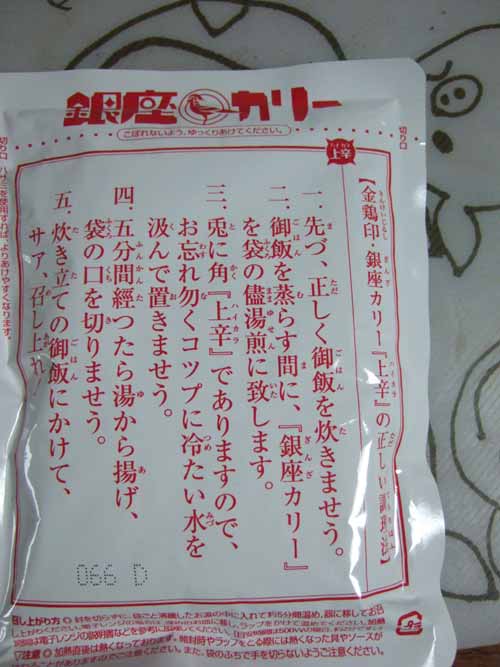 銀座カリー
こぼれないよう、ゆっくりあけてください。
切り口
切り口
ハイカラ
上辛
【金鶏印・銀座カリー『上辛』の正しい調理法】
一、先づ、正しく御飯を炊きませう。
二、御飯を蒸らす間に、『銀座カリー』
を袋の儘湯煎に致します。
三、兎に角『上辛』でありますので、
お忘れ勿くコツプに冷たい水を
汲んで置きませう。
四、五分間經つたら湯から揚げ、
袋の口を切りませう。
五、炊き立ての御飯にかけて、
サア、召し上れ!
066 D